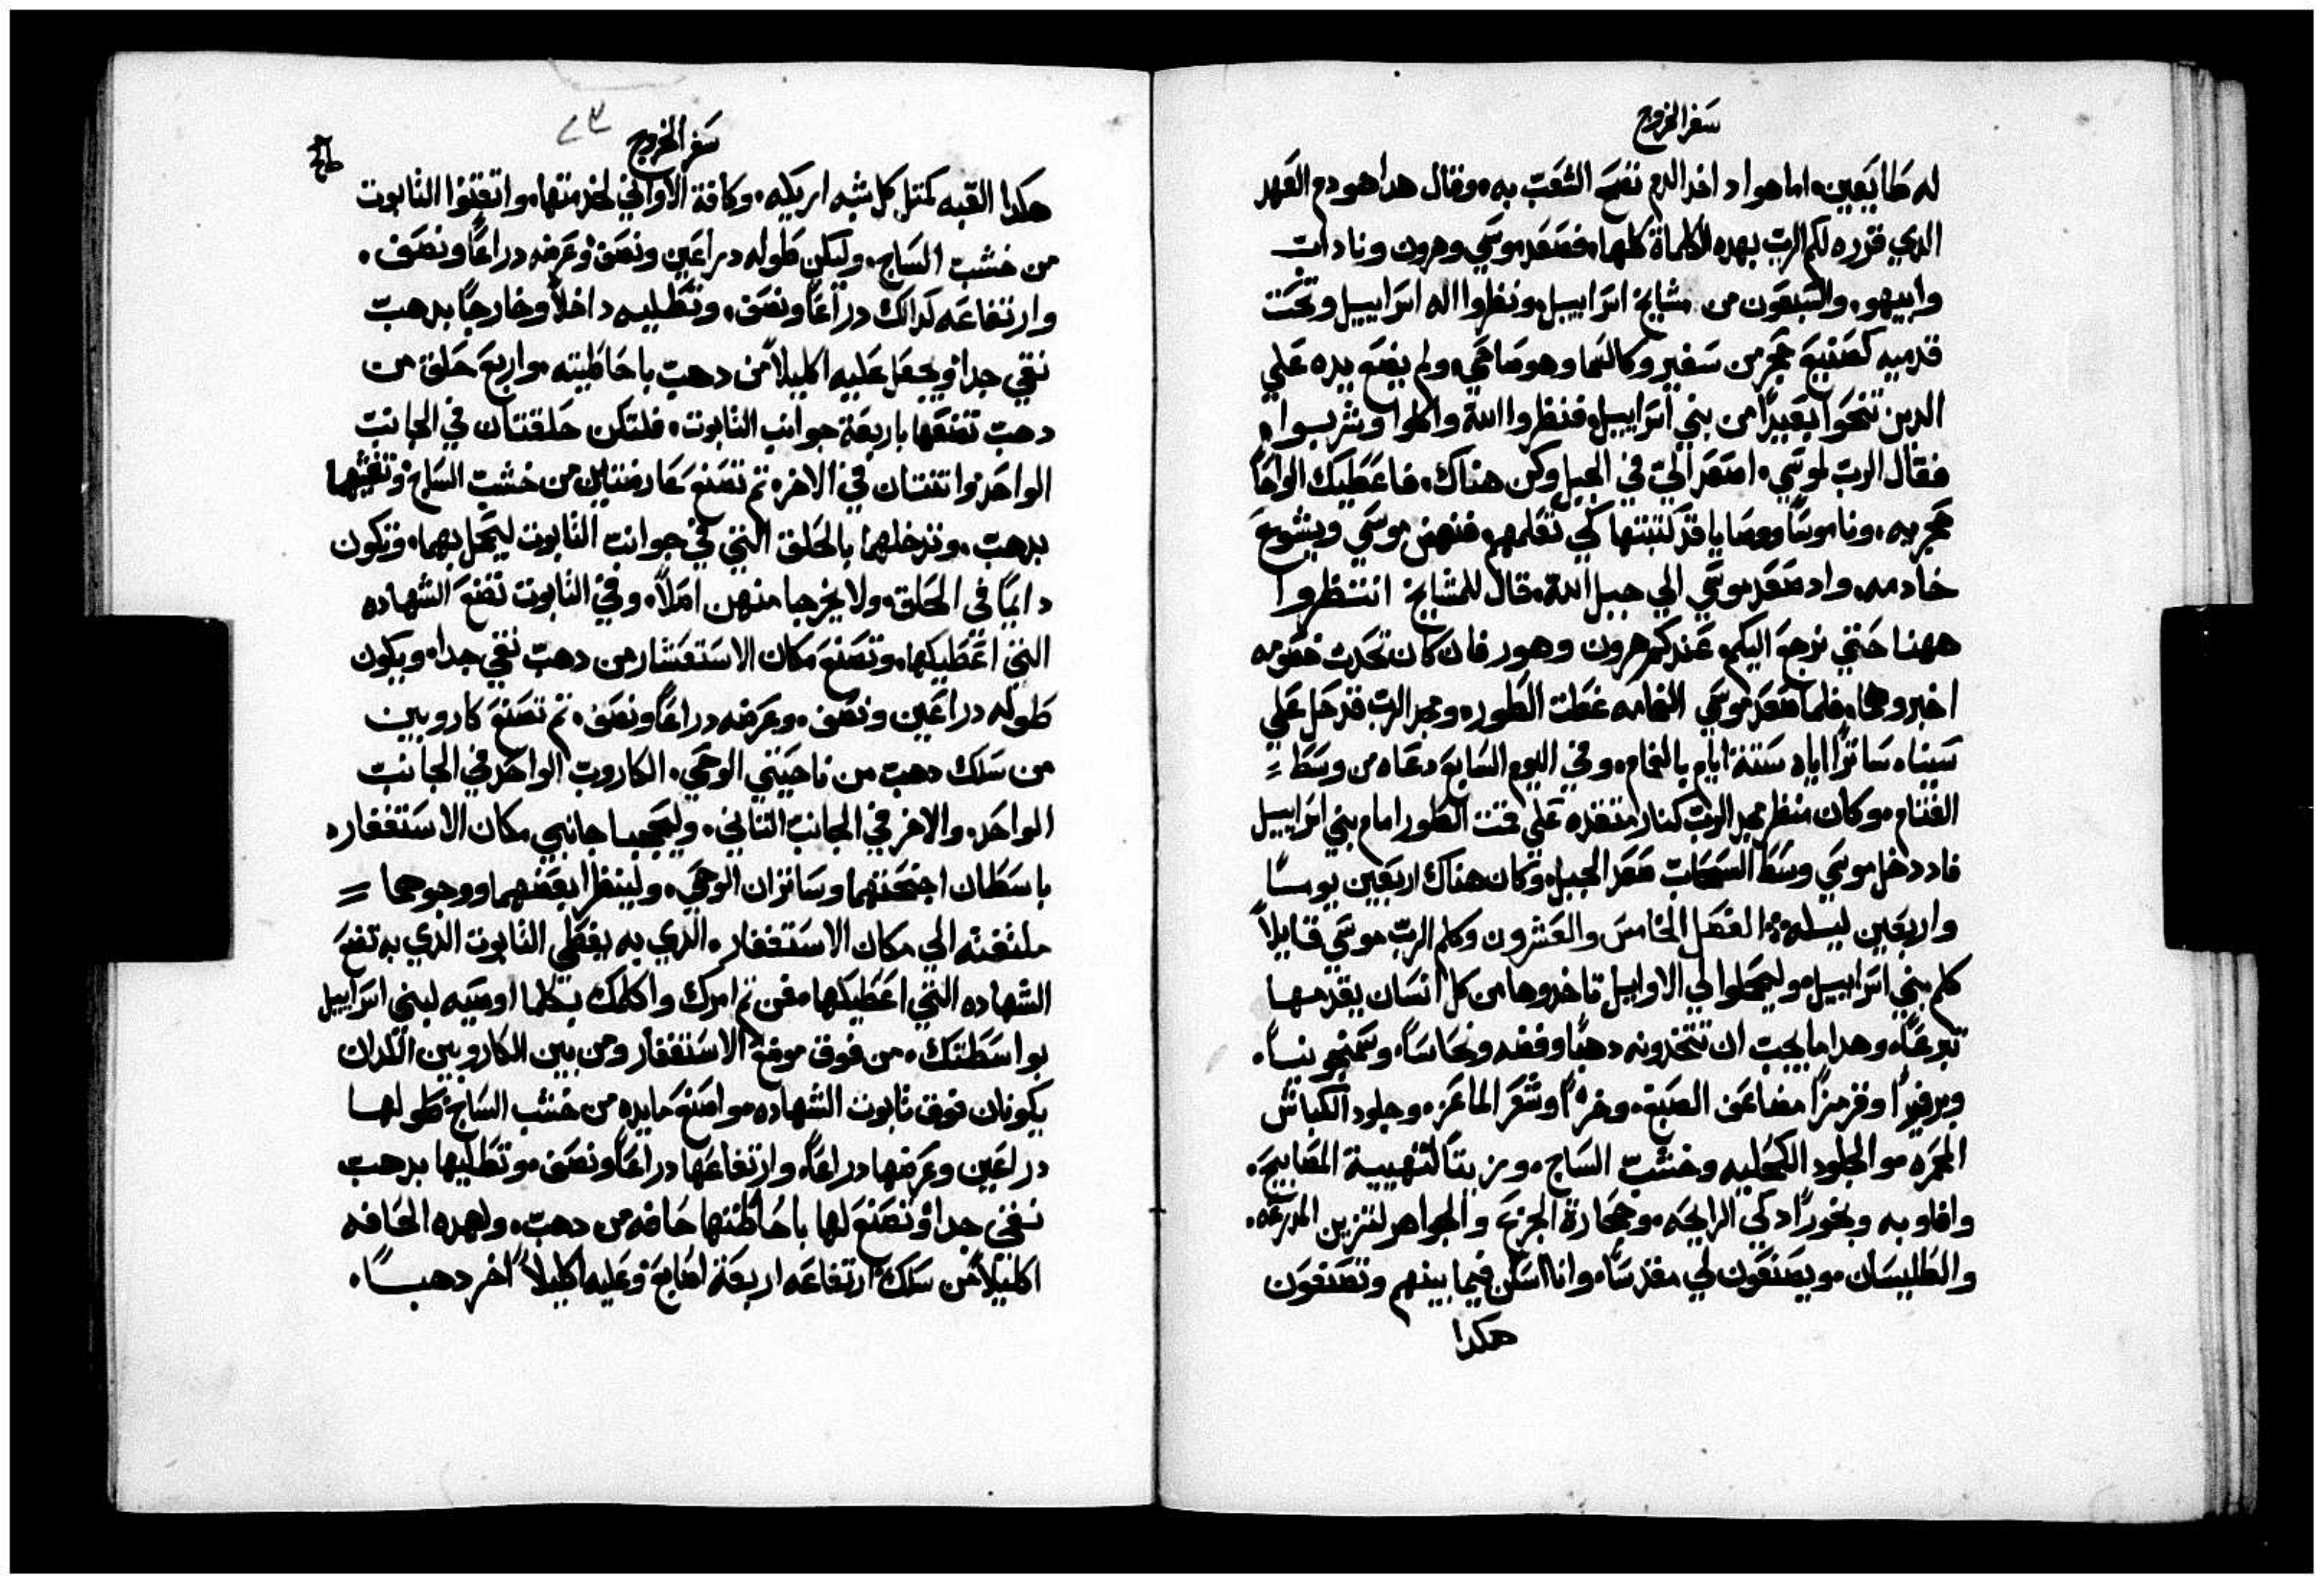 سفر الخروج
له طايعين، اما هو اد اخد الدم نضح الشعب به، وقال هدا هو دم العهد
الدي قرره لكم الرب بهده الكلماة كلها، فصعد موسي وهرون وناداب
وابيهو، والسبعون من مشايخ اسراييل، ونظروا اله اسراييل وتحت
قدميه كصنيع حجر من سفير وكالسما وهو صاحي، ولم يضع يده علي
الدين تنحوا بعيدًا من بني اسراييل، فنظروا الله واكلوا وشربوا،
فقال الرب لموسي، اصعد الي في الجبل وكن هناك، فاعطيك الواحًا
حجريه، وناموسًا ووصايا قد كتبتها لكي تعلمهم، فنهض موسي ويشوع
خادمه، واد صعد موسي الي جبل الله، قال للمشايخ انتظروا
ههنا حتي نرجع اليكم، عندكم هرون وهور فان كان تحدت خصومه
اخبروهما، فلما صعد موسي الغمامه غطت الطور، ومجد الرب قد حل علي
سيناء ساترًا اياه ستة ايام بالغمام، وفي اليوم السابع دعاه من وسط
الغتام، وكان منظر مجد الرب كنار متقده علي قمت الطور امام بني اسراييل
فاد دخل موسي وسط السحاب صعد الجبل، وكان هناك اربعين يومًا
واربعين ليله، الفصل الخامس والعشرون وكلم الرب موسي قايلاً
كلم بني اسراييل، وليحملوا لي الاوايل تاخدوها من كل انسان يقدمها
تبرعًا، وهدا ما يجب ان تتخدونه دهبًا وفضه ونحاسًا، وسمنجونيًا،
وبرفيرًا وقرمزًا مضاعف الصبغ، وخزًا وشعر الماعز، وجلود الكباش
المحمره، والجلود الكحليه وخشب الساج، وزيتًا لتهيية المصابيح،
وافاويه وبخورًا دكي الرايحه، وحجارة الجزع والجواهر لتزين المدرعه،
والطليسان، ويصنعون لي مقدسًا، وانا اسكن فيما بينهم وتصنعون
هكدا
سفر الخروج
٨٣
هكدا القبه كمتل كل شبه اريكه، وكافة الاواني لخدمتها، واتقنوا التابوت
من خشب الساج، وليكن طوله دراعين ونصف وعرضه دراعًا ونصف،
وارتفاعه كدالك دراعًا ونصف، وتطليه داخلاً وخارجًا بدهب
نقي جدا، ويجعل عليه اكليلاً من دهب باحاطيته، واربع حلق من
دهب تضعها باربعة جوانب التابوت، فلتكن حلقتان في الجانب
الواحد واتنتان في الاخر، تم تصنع عارضتين من خشب الساج وتغشيها
بدهب، وتدخلهما بالحلق التي في جوانب التابوت ليحمل بهما، وتكون
دايمًا في الحلق، ولا يخرجا منهن اصلاً، وفي التابوت تضع الشهاده
التي اعطيكها، وتصنع مكان الاستغفار من دهب نقي جدا، ويكون
طوله دراعين ونصف، وعرضه دراعًا ونصف، تم تصنع كاروبين
من سلك دهب من ناحيتي الوحي، الكاروب الواحد في الجانب
الواحد، والاخر في الجانب التاني، وليحجبا جانبي مكان الاستغفار،
باسطان اجنحتهما وساتران الوحي، ولينظرا بعضهما ووجوههما
ملتفته الي مكان الاستغفار، الدي به يغطي التابوت الدي به تضع
الشهاده التي اعطيكها، فمن تم امرك واكلمك بكلما اوصيه لبني اسراييل
بواسطتك، من فوق موضع الاستغفار ومن بين الكاروبين اللدان
يكونان فوق تابوت الشهاده، واصنع مايده من خشب الساج طولها
دراعين وعرضها دراعًا، وارتفاعها دراعًا ونصف، وتطليها بدهب
نقي جدا، وتصنع لها باحاطتها حافه من دهب، ولهده الحافه
اكليلاً من سلك ارتفاعه اربعة اصابع، وعليه اكليلاً اخر دهبًا،